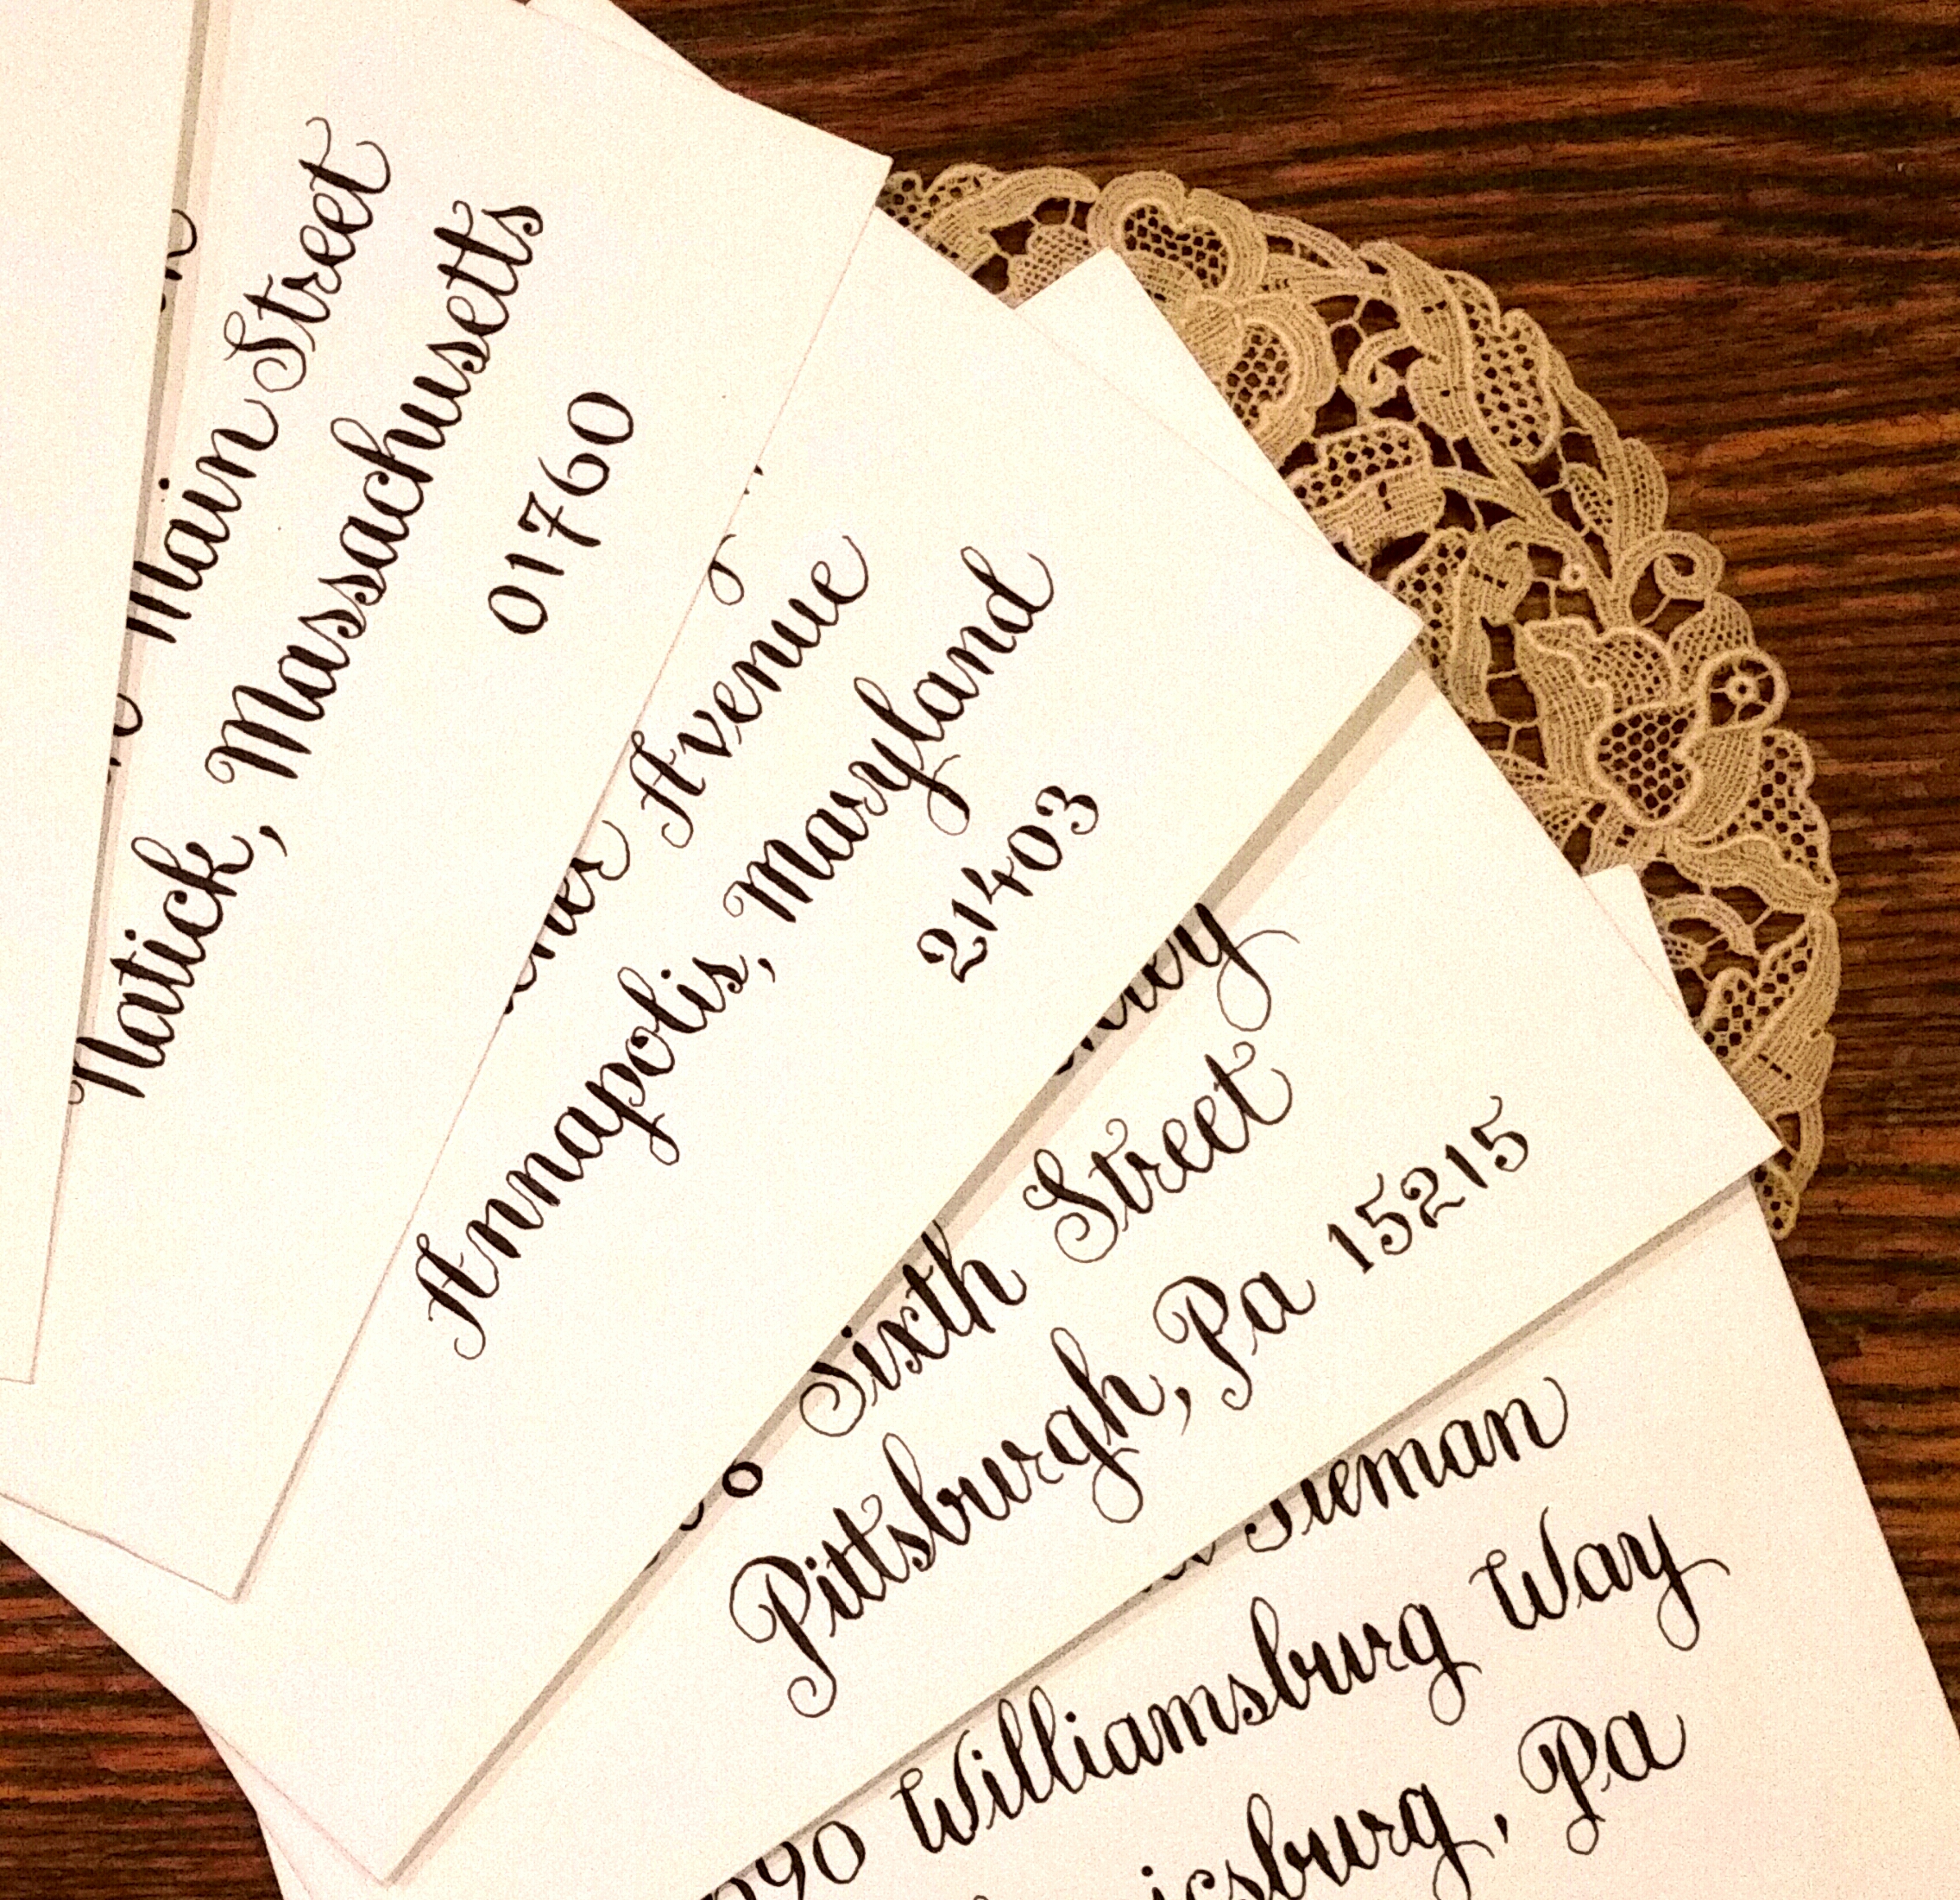 Main Street
Natick, Massachusetts
01760
Avenue
Annapolis, Maryland
21403
Sixth Street
Pittsburgh, Pa 15215
Tieman
90 Williamsburg Way
Pa